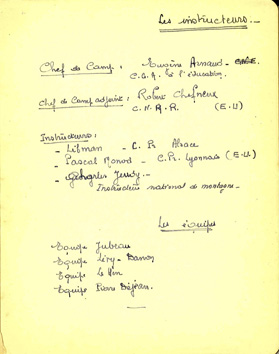 Les instructeurs._
Chef de Camp : Eugène Arnaud -
C.G.A. à l'éducation.
Chef de Camp adjoint : Robert
C.N.A.R. (E.U)
Instructeurs :
- Litman - C.R. Alsace
- Pascal Monod - C.R. Lyonnais (E.U)
- Georges
Instructeur national de montagne.
Les équipes
Equipe
Equipe Léry-
Equipe Le Min
Equipe Pierre Déjean.